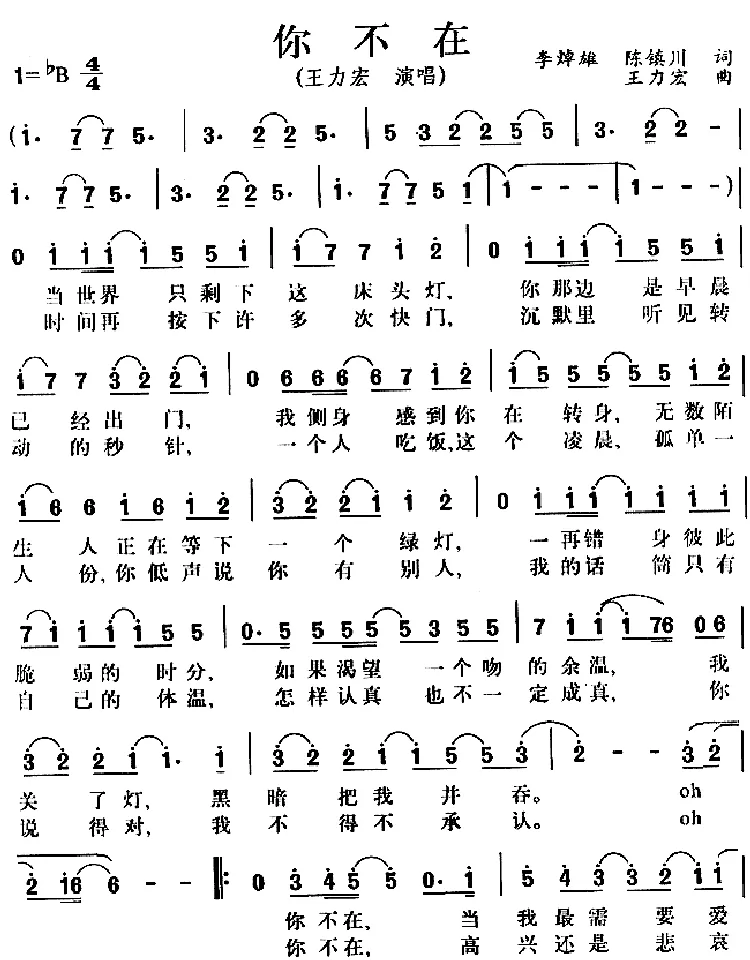 你 不 在
1=♭B 4/4
(王力宏 演唱)
李焯雄 陈镇川 词
王力宏 曲
(i· 7 7 5· | 3· 2 2 5· | 5 3 2 2 5 5 | 3· 2 2 - |
i· 7 7 5· | 3· 2 2 5· | i· 7 7 5 1 | 1 - - - | 1 - - -)|
0 i i i i 5 5 i | i 7 7 i 2 | 0 i i i i 5 5 i |
当世界 只剩下这 床头灯, 你那边 是早晨
时间再 按下许多 次快门, 沉默里 听见转
i 7 7 3 2 2 i | 0 6 6 6 6 7 i 2 | i 5 5 5 5 5 i 2 |
已经出门, 我侧身 感到你在转身, 无数陌
动的秒针, 一个人 吃饭,这个凌晨, 孤单一
i 6 6 i 6 i 2 | 3 2 2 i i 2 | 0 i i i i i i i |
生人正在等下一个绿灯, 一再错 身彼此
人份,你低声说你有别人, 我的话 筒只有
7 i i i i 5 5 | 0· 5 5 5 5 3 5 5 | 7 i i i 7 6 0 6 |
脆弱的时分, 如果渴望 一个吻的余温, 我
自己的体温, 怎样认真 也不一定成真, 你
3 2 2 i i· i | 3 2 2 i i 5 5 3 | 2 - - 3 2 |
关了灯, 黑暗把我并吞。 oh
说得对, 我不得不承认。 oh
2 i 6 6 - - |: 0 3 4 5 5 0· i | 5 4 3 3 2 2 i |
你不在, 当我最需要爱
你不在, 高兴还是悲哀